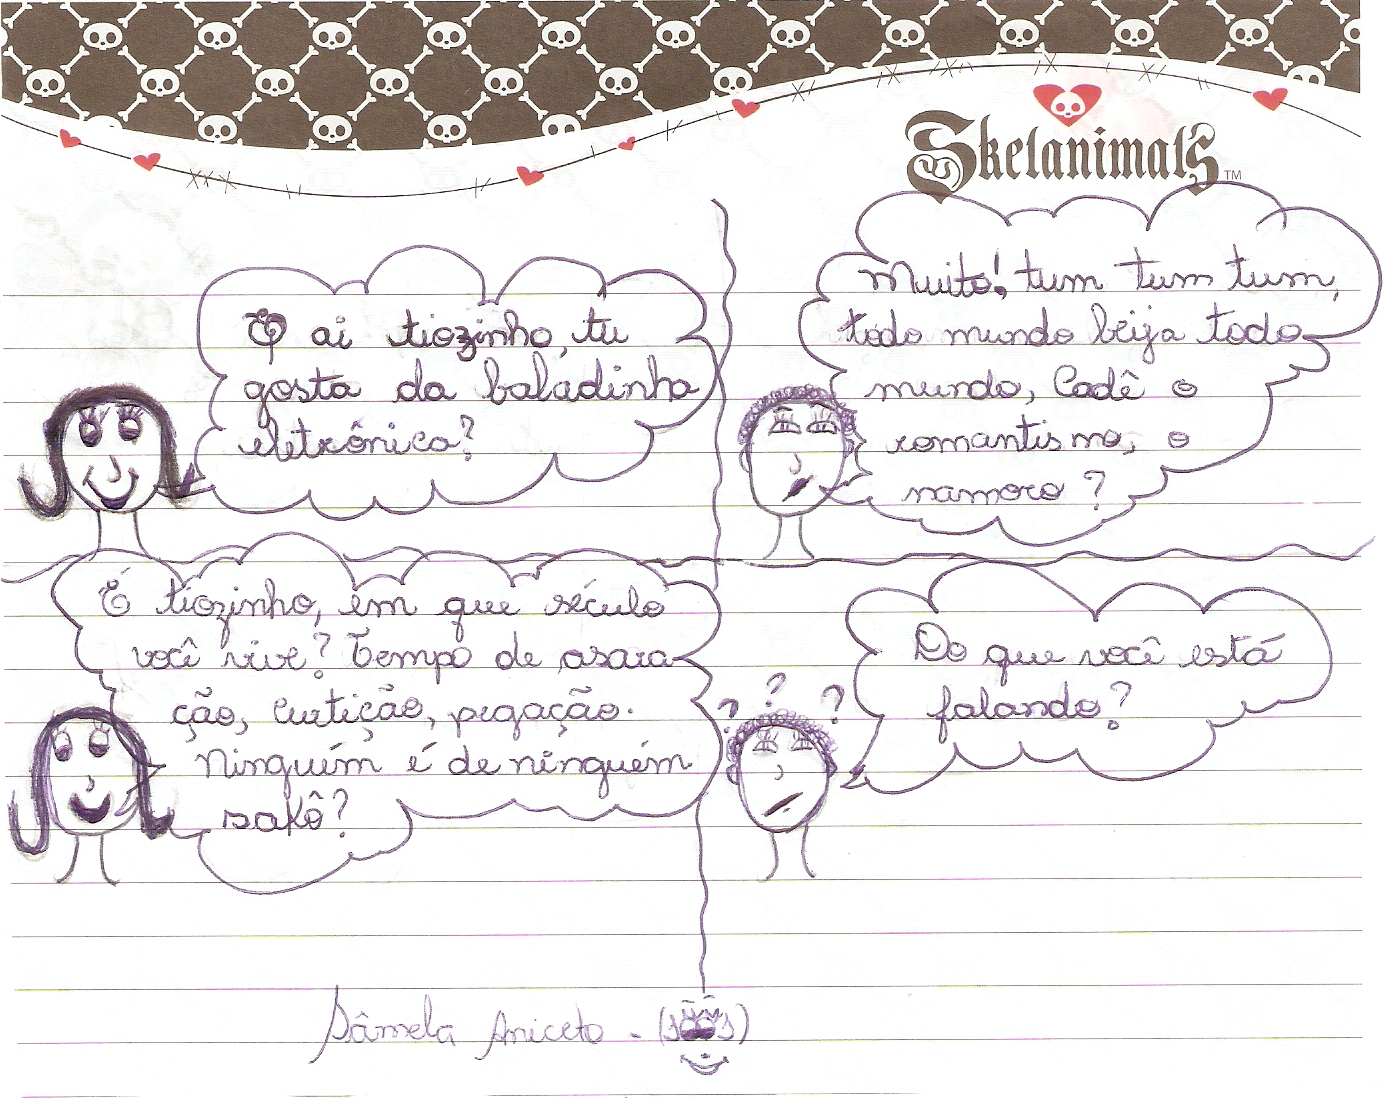 Skelanimals TM
E ai tiozinho, tu
gosta da baladinha
eletrônica?
Muito! tum tum tum,
todo mundo beija todo
mundo, Cadê o
romantismo, o
namoro?
É tiozinho, em que século
você vive? Tempo de asara
ção, Curtição, pegação.
Ninguém é de ninguém
sakô?
? ? ?
Do que você está
falando?
Sâmela Aniceto -